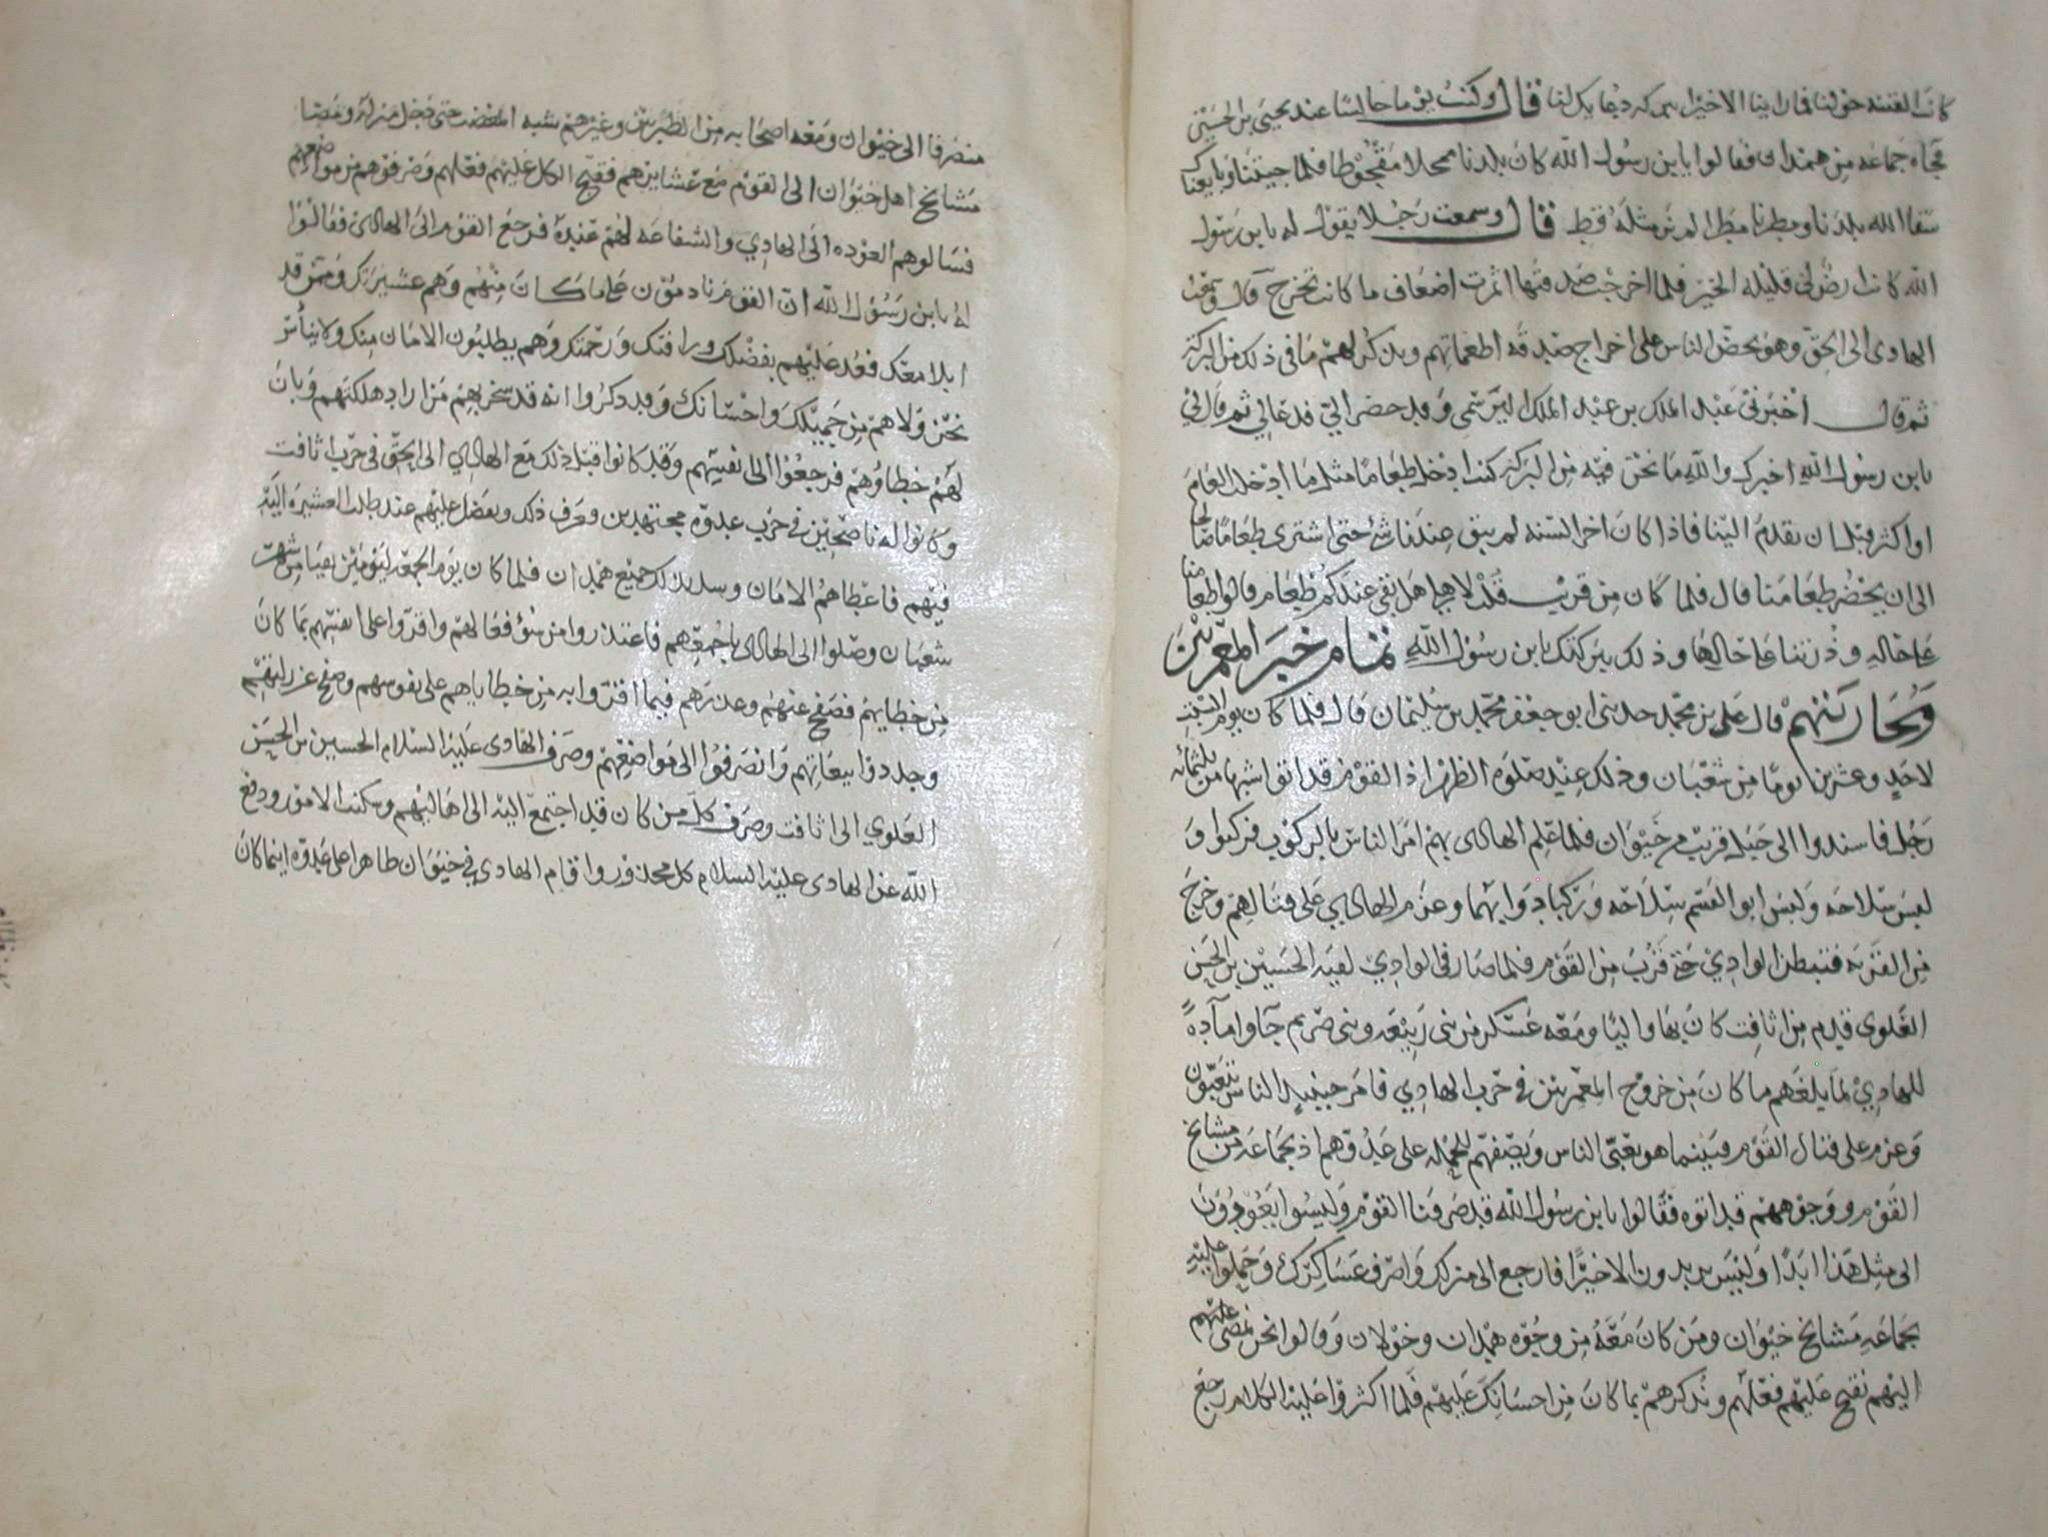 كانت الفتنة حولنا فما راينا الا خيرا ببركة دعايك لنا قال وكنت يوما جالسا عند يحيى بن الحسين
فجاه جماعه من همدان فقالوا يابن رسول الله كان بلدنا ممحلا مقحوطا فلما جيتنا وبايعناك
سقا الله بلدنا ومطرنا مطرا لم نر مثله قط قال وسمعت رجلا يقول له يابن رسول
الله كانت ارضي قليله الخير فلما اخرجت صدقتها اثمرت اضعاف ما كانت تخرج قال وسمعت
الهادي الى الحق وهو يحض الناس على اخراج صدقه اطعماتهم ويذكر لهم ما في ذلك من البركة
ثم قال اخبرني عبد الملك بن عبد الملك وقد حضر الي فدعا لي ثم قال لي
يابن رسول الله اخبرك والله ما نحن فيه من البركة كنت ادخل طعاما مثل ما ادخل العام
او اكثر قبل ان تقدم الينا فاذا كان اخر السنه لم يبق عندنا شئ حتى اشترى طعاما صالحا
الى ان يحضر طعامنا قال فلما كان من قريب قلت لاهلي هل بقي عندكم طعام قالوا طعامنا
على حاله وذرتنا على حالها وذلك ببركتك يابن رسول الله تمام خبر المعمريين
ومحاربتهم قال علي بن محمد حدثني ابو جعفر محمد بن سليمان قال فلما كان يوم السبت
لاحد وعشرين يوما من شعبان وذلك عند صلوة الظهر اذ القوم قد اتوا شبيها من ثلثمائه
رجل فاسندوا الى جبل قريب من خيوان فلما علم الهادي بهم امر الناس بالركوب فركبوا و
لبس سلاحه ولبس ابو القسم سلاحه وركبا دوابهما وعزم الهادي على قتالهم وخرج
من القرية فتبطن الوادي حتى قرب من القوم فلما صار في الوادي لقيه الحسين بن الحسن
العلوي قدم من اثافت كان بها واليا ومعه عسكر من بني ربيعه وبني صريم جآوا مآدة
للهادي لما بلغهم ما كان من خروج المعمريين في حرب الهادي فامر حينيذ الناس يتعبون
وعزم على قتال القوم فبينما هو يعبي الناس ويصففهم للحمله على عدوهم اذ بجماعه من مشايخ
القوم ووجوههم قد اتوه فقالوا يابن رسول الله قد صرفنا القوم وليسوا يعودون
الى مثل هذا ابدا وليس يريدون الا خيرا فارجع الى منزلك واصرف عساكرك وحملوا عليه
بجماعه مشايخ خيوان ومن كان معه من وجوه همدان وخولان وقالوا نحن نمضى عليهم
اليهم نقبح عليهم فعلهم ونذكرهم بما كان من احسانك عليهم فلما اكثروا عليه الكلام رجع
منصرفا الى خيوان ومعه اصحابه من الطبريين وغيرهم شبه المغضب حتى دخل منزله ومضا
مشايخ اهل خيوان الى القوم مع عشايرهم فقبح الكل عليهم فعلهم وصرفوهم من مواضعهم
فسالوهم العوده الى الهادي والشفاعه لهم عنده فرجع القوم الى الهادي فقالوا
له يابن رسول الله ان القوم نادمون على ما كان منهم وهم عشيرتك وممن قد
ابلا معك فعد عليهم بفضلك ورافتك ورحمتك وهم يطلبون الامان منك ولا نياس
نحن ولا هم من جميلك واحسانك وقد ذكروا انه قد سخر بهم من اراد هلكتهم وبان
لهم خطاؤهم فرجعوا الى انفسهم وقد كانوا قبل ذلك مع الهادي الى الحق في حرب اثافت
وكانوا له ناصحين في حرب عدوه مجتهدين فعرف ذلك وتفضل عليهم عند طلب العشيرة اليه
فيهم فاعطاهم الامان وسر بذلك جميع همدان فلما كان يوم الجمعة ليومين بقيا من شهر
شعبان وصلوا الى الهادي باجمعهم فاعتذروا من سوء فعالهم واقروا على انفسهم بما كان
من خطاياهم فصفح عنهم وعذرهم فيما اقروا به من خطاياهم على نفوسهم وصفح عن زلتهم
وجددوا بيعاتهم وانصرفوا الى مواضعهم وصرف الهادي عليه السلام الحسين بن الحسن
العلوي الى اثافت وصرف كل من كان قد اجتمع اليه الى اهاليهم وسكنت الامور ودفع
الله عن الهادي عليه السلام كل محذور واقام الهادي في خيوان ظاهرا على عدوه اينما كان